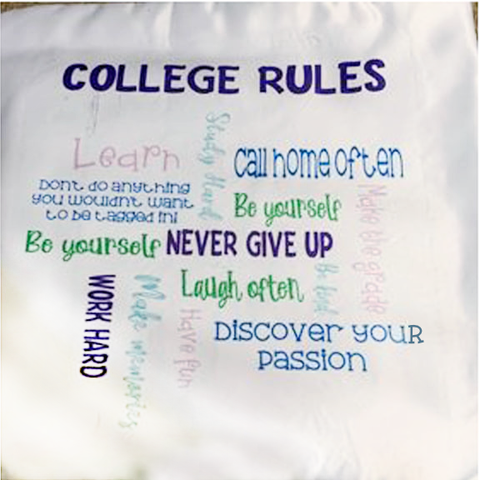 COLLEGE RULES
Study Hard
Learn
Call home often
Dont do anything
you wouldnt want
to be tagged in!
Be yourself
Make the grade
Be yourself
NEVER GIVE UP
Be kind
Laugh often
WORK HARD
Make memories
Have fun
Discover your
passion